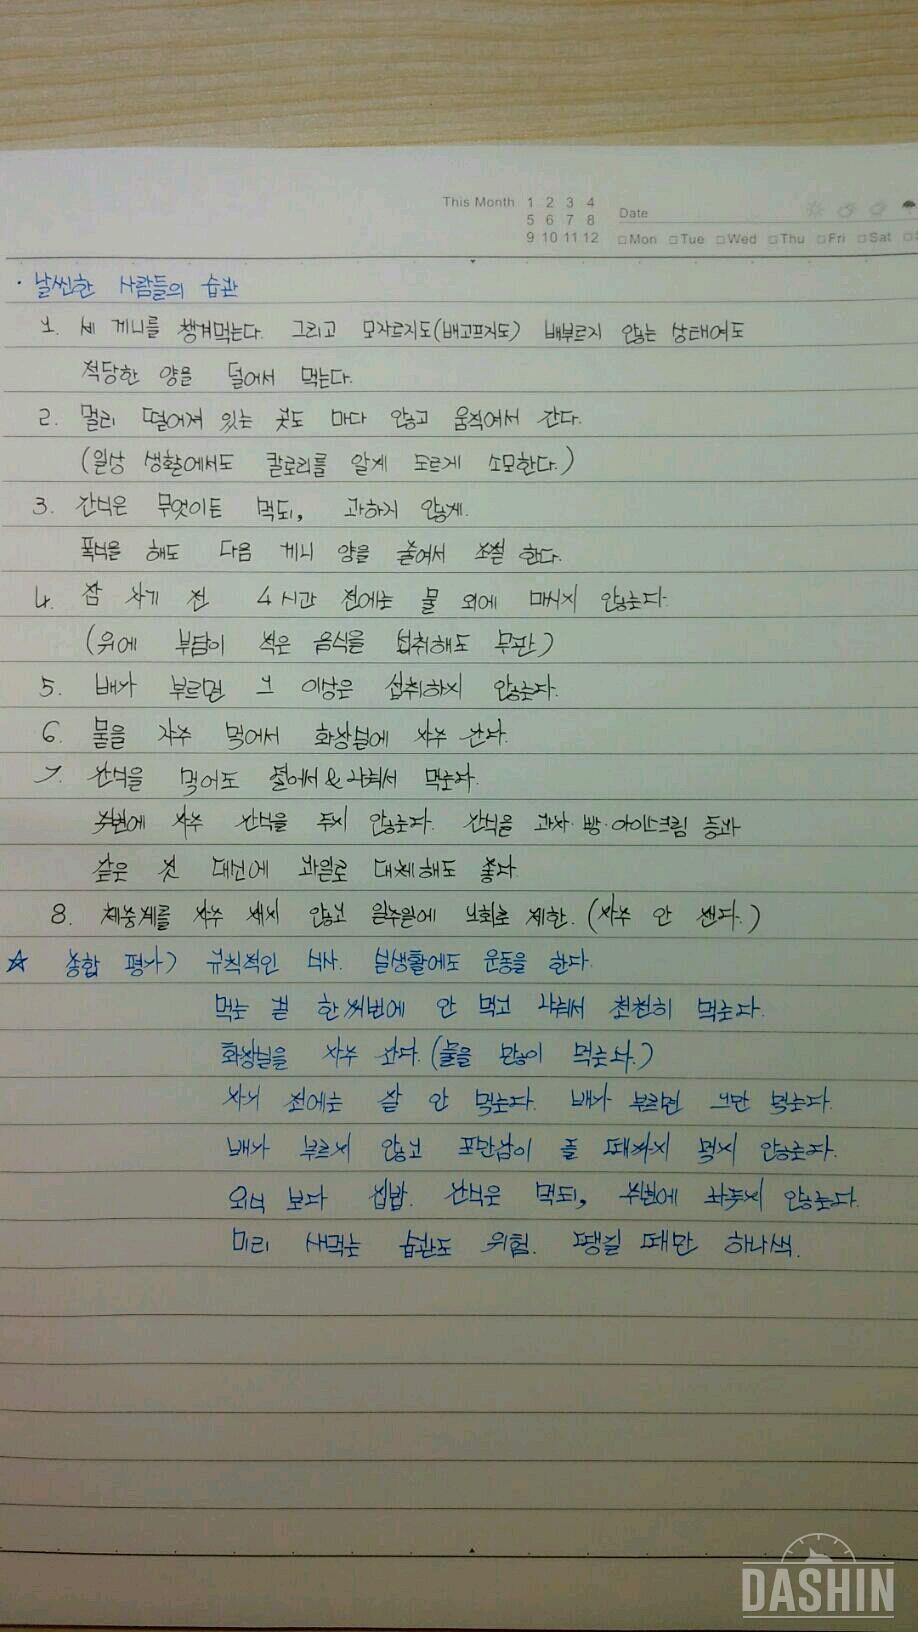 This Month 1 2 3 4
5 6 7 8
9 10 11 12
Date
□Mon □Tue □Wed □Thu □Fri □Sat
· 날씬한 사람들의 습관
1. 세 끼니를 챙겨먹는다. 그리고 모자르지도(배고프지도) 배부르지 않는 상태여도
적당한 양을 덜어서 먹는다.
2. 멀리 떨어져 있는 곳도 마다 않고 움직여서 간다.
(일상 생활에서도 칼로리를 알게 모르게 소모한다.)
3. 간식은 무엇이든 먹되, 과하지 않게.
폭식을 해도 다음 끼니 양을 줄여서 조절 한다.
4. 잠 자기 전 4시간 전에는 물 외에 마시지 않는다.
(위에 부담이 적은 음식을 섭취해도 무관)
5. 배가 부르면 그 이상은 섭취하지 않는다.
6. 물을 자주 먹어서 화장실에 자주 간다.
7. 간식을 먹어도 덜어서 & 나눠서 먹는다.
주변에 자주 간식을 두지 않는다. 간식을 과자·빵·아이스크림 등과
같은 것 대신에 과일로 대체해도 좋다.
8. 체중계를 자주 재지 않고 일주일에 1회로 제한. (자주 안 잰다.)
☆ 종합 평가) 규칙적인 식사. 실생활에도 운동을 한다.
먹는 걸 한꺼번에 안 먹고 나눠서 천천히 먹는다.
화장실을 자주 간다. (물을 많이 먹는다.)
자기 전에는 잘 안 먹는다. 배가 부르면 그만 먹는다.
배가 부르지 않고 포만감이 올 때까지 먹지 않는다.
외식 보다 집밥. 간식은 먹되, 주변에 놔두지 않는다.
미리 사먹는 습관도 위험. 땡길 때만 하나씩.
DASHIN